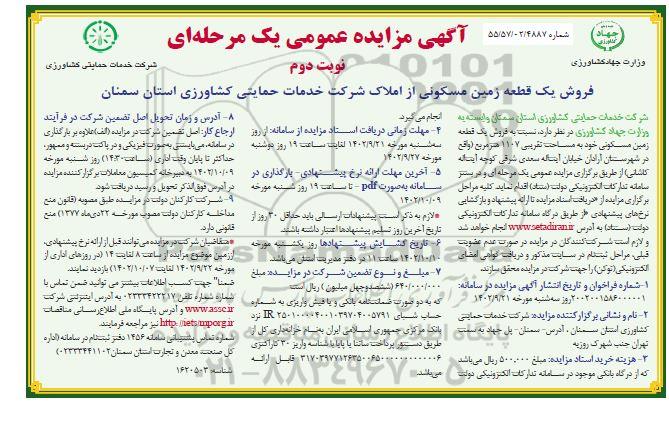 شماره ۵۵/۵۷/۰۲/۴۸۸۷
آگهی مزایده عمومی یک مرحله‌ای
نوبت دوم
جهاد
وزارت جهادکشاورزی
شرکت خدمات حمایتی کشاورزی
فروش یک قطعه زمین مسکونی از املاک شرکت خدمات حمایتی کشاورزی استان سمنان
شرکت خدمات حمایتی کشاورزی استان سمنان وابسته به
وزارت جهاد کشاورزی در نظر دارد، نسبت به فروش یک قطعه
زمین مسکونی خود به مساحت تقریبی ۱۱۰۷ مترمربع (واقع
در شهرستان آرادان خیابان آیت‌اله سعدی شرقی کوچه آیت‌اله
کاشانی) از طریق برگزاری مزایده عمومی یک مرحله ای و در بستر
سامانه تدارکات الکترونیکی دولت (ستاد) اقدام نماید. کلیه مراحل
برگزاری مزایده از «دریافت اسناد مزایده تا ارائه پیشنهاد و بازگشایی
نرخ‌های پیشنهادی» از طریق درگاه سامانه تدارکات الکترونیکی
دولت (ستاد) به آدرس www.setadiran.ir انجام خواهد شد
و لازم است شرکت‌کنندگان در مزایده در صورت عدم عضویت
قبلی، مراحل ثبت‌نام در سایت مذکور و دریافت گواهی امضای
الکترونیکی (توکن) را جهت شرکت در مزایده محقق سازند.
۱-شماره فراخوان و تاریخ انتشار آگهی مزایده در سامانه:
روز سه‌شنبه مورخه ۱۴۰۲/۹/۲۱
۲- نام و نشانی برگزار کننده مزایده: شرکت خدمات حمایتی
کشاورزی استان سمنان، آدرس- سمنان-پل جهاد به سمت
تهران جنب شهرک روزیه
۳- هزینه خرید اسناد مزایده: مبلغ ۵۰۰,۰۰۰ ریال می‌باشد
که از درگاه بانکی موجود در سامانه تدارکات الکترونیکی دولت
انجام می‌گیرد.
۴- مهلت زمانی دریافت اسناد مزایده از سامانه: از روز
سه‌شنبه مورخه ۱۴۰۲/۹/۲۱ لغایت ساعت ۱۹ روز دوشنبه
مورخه ۱۴۰۲/۹/۲۷
۵- آخرین مهلت ارائه نرخ پیشنهادی- بارگذاری در
سامانه به‌صورت pdf - تا ساعت ۱۹ روز شنبه مورخه
۱۴۰۲/۱۰/۰۹
*لازم به ذکر است پیشنهادات ارسالی باید حداقل ۳۰ روز از
تاریخ آخرین روز تسلیم پیشنهادها اعتبار داشته باشند.
۶- تاریخ گشایش پیشنهادها روز یکشنبه مورخه
۱۴۰۲/۱۰/۱۰ ساعت ۱۱ در دفتر مدیریت استانی می‌باشد.
۷- مبلغ و نوع تضمین شرکت در مزایده: مبلغ
۶۴۰/۰۰۰/۰۰۰ (ششصدوچهل میلیون) ریال است
که به دو صورت ضمانتنامه بانکی و یا فیش واریزی به شماره
حساب شبای IR نزد
بانک مرکزی جمهوری اسلامی ایران به‌نام خزانه‌داری کل از
طریق دستور پرداخت ساتنا یا پایا با شناسه واریز ۳۰ کاراکتری
قابل ارائه
می‌باشد.
۸- آدرس و زمان تحویل اصل تضمین شرکت در فرآیند
ارجاع کار: اصل تضمین شرکت در مزایده (الف) علاوه بر بارگذاری
در سامانه، می‌بایستی به‌صورت فیزیکی و در پاکت دربسته و ممهور،
حداکثر تا پایان وقت اداری (ساعت ۱۴:۳۰) روز شنبه مورخه
۱۴۰۲/۱۰/۰۹ به دبیرخانه کمیسیون معاملات برگزار کننده مزایده
در آدرس فوق الذکر تحویل و رسید دریافت شود.
۹- شرکت کارکنان دولت در مزایده طبق مصوبه (قانون منع
مداخله کارکنان دولت مصوب مورخه ۲۲ دی‌ماه ۱۳۷۷) منع
قانونی دارد.
*متقاضیان شرکت در مزایده می‌توانند قبل از ارائه نرخ پیشنهادی،
از زمین موضوع مزایده از ساعت ۸ لغایت ۱۴ (در روزهای اداری از
مورخه ۱۴۰۲/۹/۲۲ لغایت ۱۴۰۲/۱۰/۰۷) بازدید نمایند.
ضمناً جهت کسب اطلاعات بیشتر می توانید ضمن تماس با
شماره تلفن ۰۲۳۳۳۴۲۲۲۱۷ به آدرس اینترنتی شرکت
www.assc.ir و آدرس پایگاه ملی اطلاع‌رسانی مناقصات
http://iets/mporg.ir نیز مراجعه فرمایند.
شماره تماس پشتیبانی سامانه ۱۴۵۶ دفتر ثبت‌نام در سامانه (اداره
کل صنعت، معدن و تجارت استان سمنان ۰۲۳۳۳۴۴۱۱۰۲)
شناسه: ۱۶۲۰۵۰۳
۰۲۱-۸۸۳۴۹۶۷۰-۵